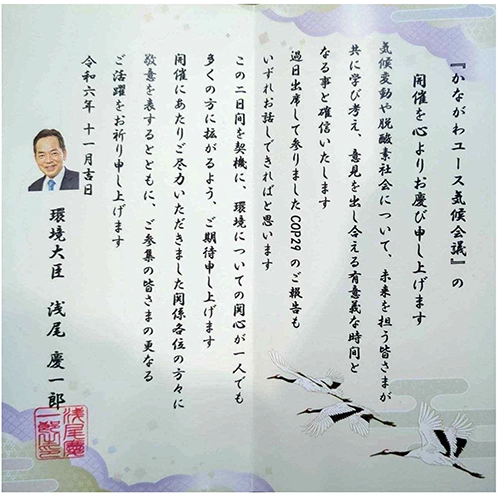 『かながわユース気候会議』の
開催を心よりお慶び申し上げます
気候変動や脱酸素社会について、未来を担う皆さまが
共に学び考え、意見を出し合える有意義な時間と
なる事と確信いたします
過日出席して参りましたCOP29のご報告も
いずれお話しできればと思います
この二日間を契機に、環境についての関心が一人でも
多くの方に拡がるよう、ご期待申し上げます
開催にあたりご尽力いただきました関係各位の方々に
敬意を表するとともに、ご参集の皆さまの更なる
ご活躍をお祈り申し上げます
令和六年 十一月吉日
環境大臣 浅尾 慶一郎